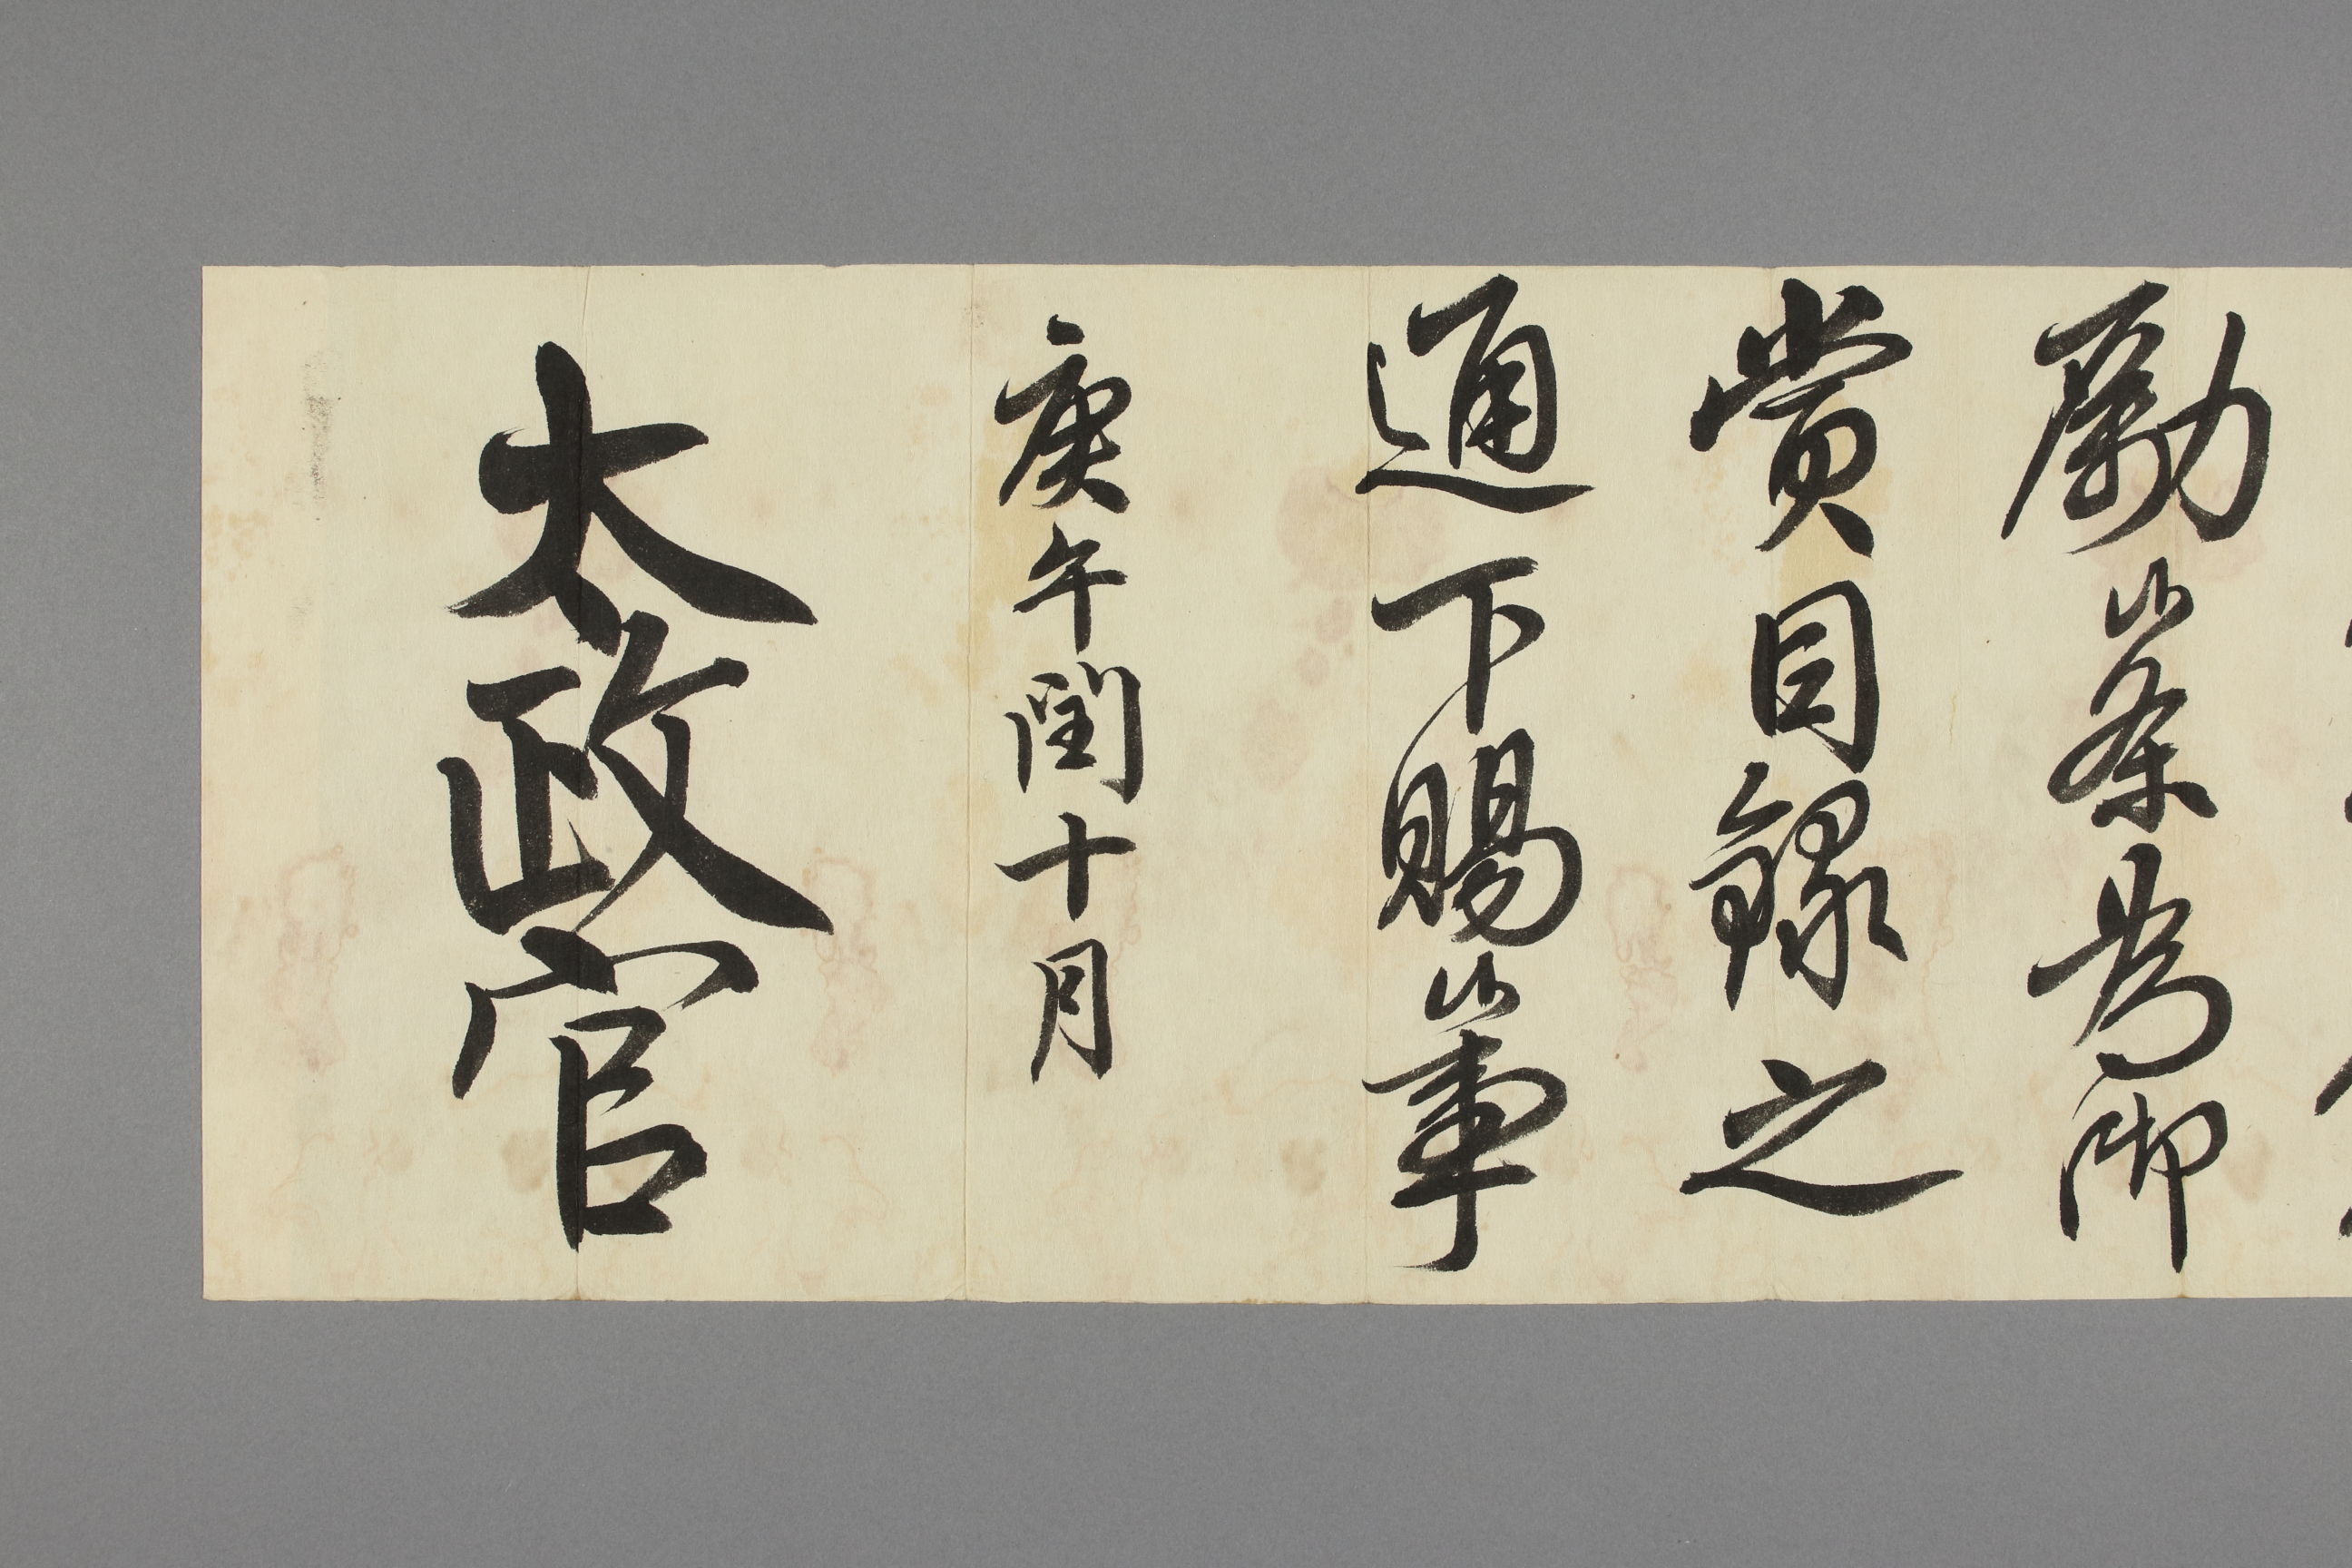 勵候条為御
賞目録之
通下賜候事
庚午閏十月
太政官